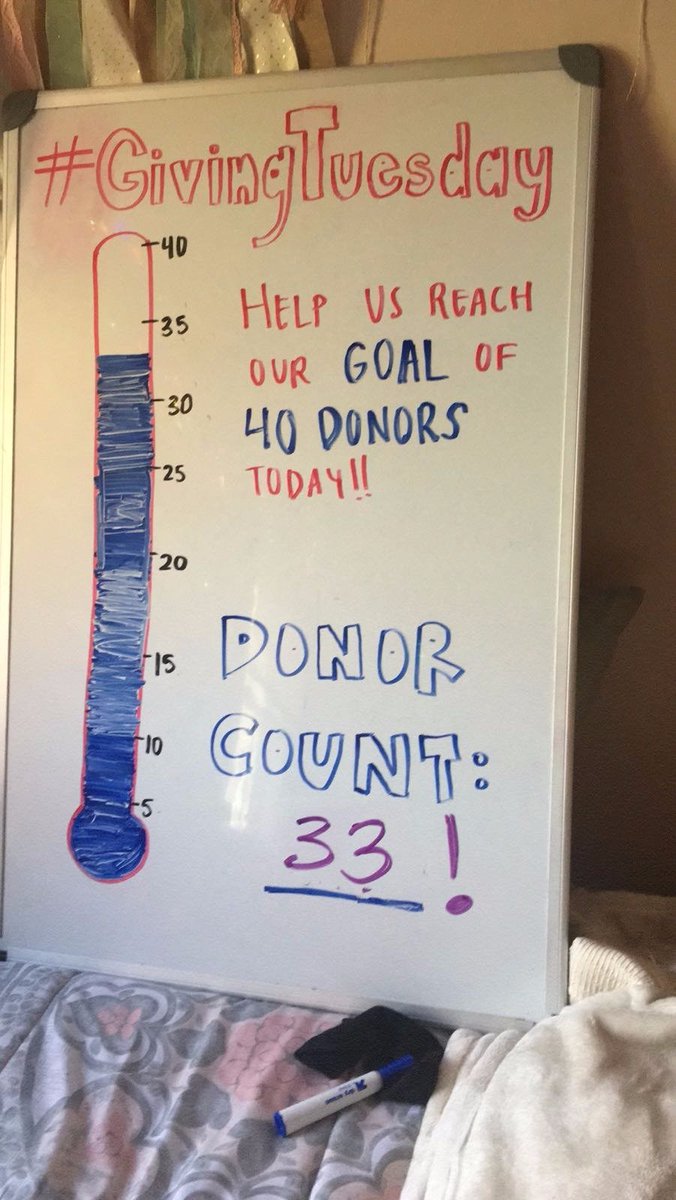 #GivingTuesday
40
35
30
25
20
15
10
5
HELP US REACH
OUR GOAL OF
40 DONORS
TODAY!!
DONOR
COUNT:
33!